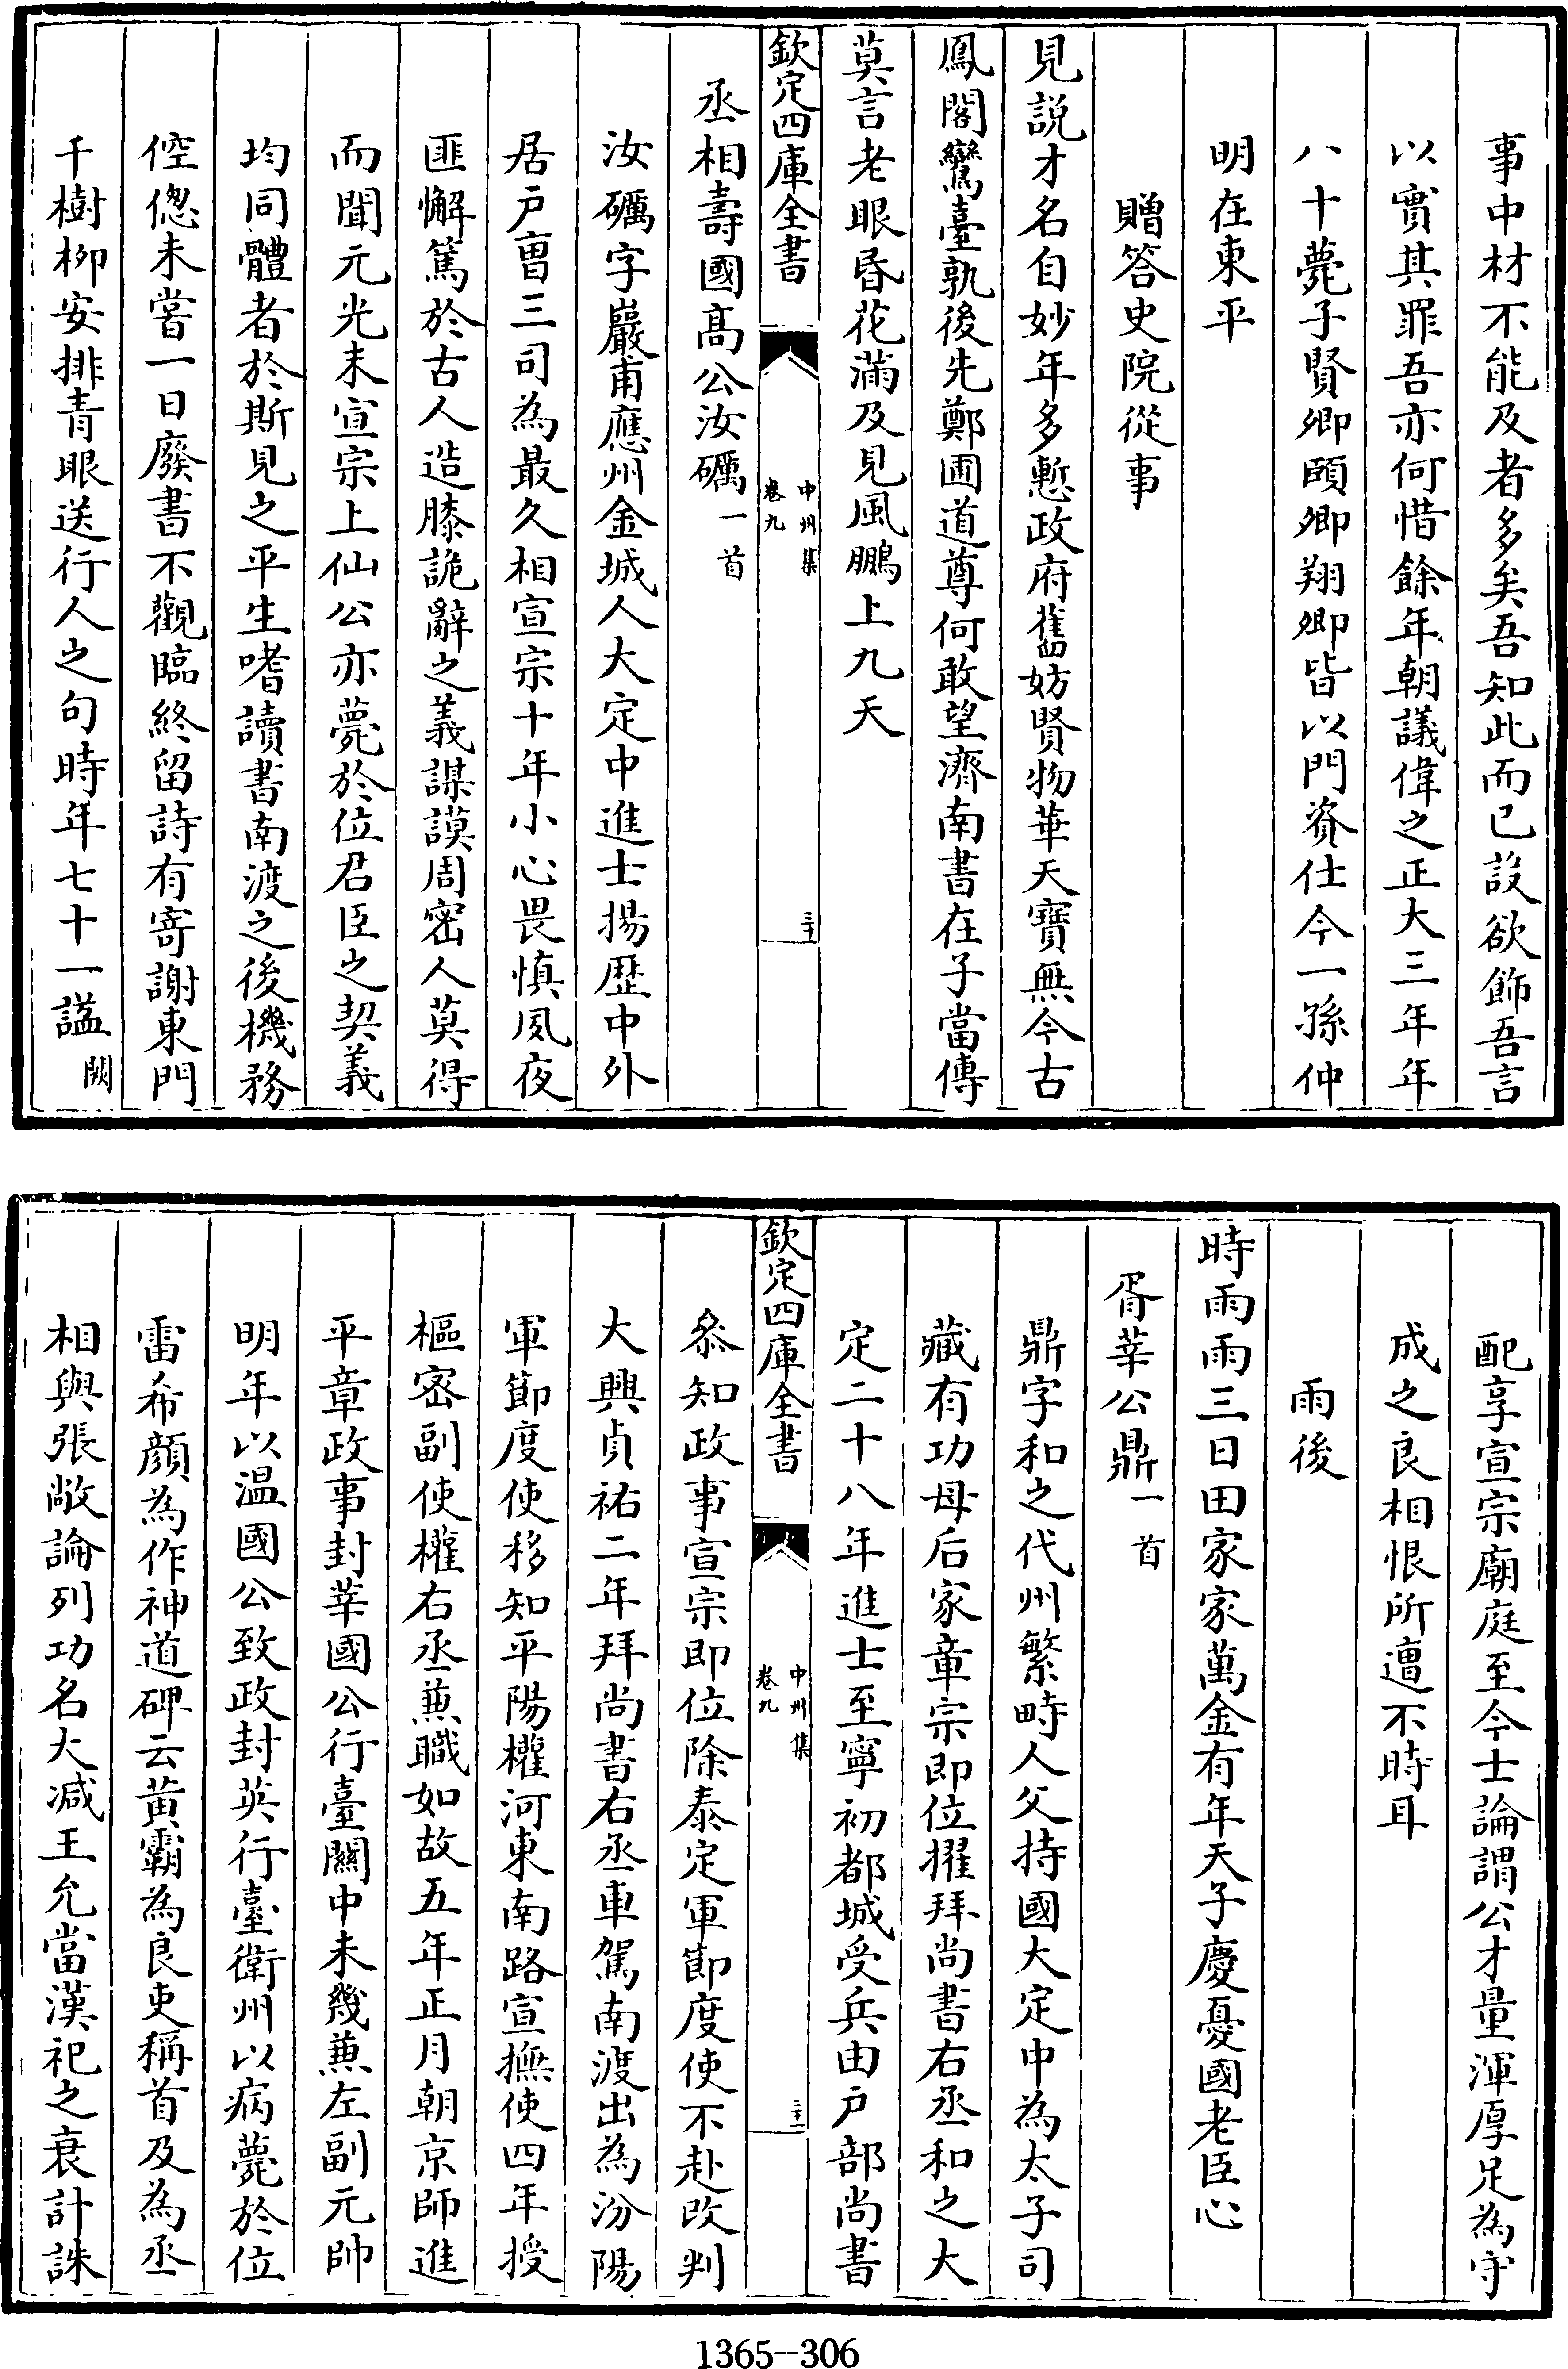 事中材不能及者多矣吾知此而已設欲飾吾言
以實其罪吾亦何惜餘年朝議偉之正大三年年
八十薨子賢卿頤卿翔卿皆以門資仕今一孫仲
明在東平
贈答史院從事
見説才名自妙年多慙政府舊妨賢物華天寶無今古
鳳閣鸞臺孰後先鄭圃道尊何敢望濟南書在子當傳
莫言老眼昏花滿及見風鵬上九天
欽定四庫全書
中州集
卷九
三十
丞相壽國髙公汝礪一首
汝礪字巖甫應州金城人大定中進士揚歴中外
居户曺三司為最久相宣宗十年小心畏慎夙夜
匪懈篤於古人造膝詭辭之義謀謨周密人莫得
而聞元光末宣宗上仙公亦薨於位君臣之契義
均同體者於斯見之平生嗜讀書南渡之後機務
倥偬未嘗一日廢書不觀臨終留詩有寄謝東門
千樹柳安排青眼送行人之句時年七十一謚闕
配享宣宗廟庭至今士論謂公才量渾厚足為守
成之良相恨所遭不時耳
雨後
時雨雨三日田家家萬金有年天子慶憂國老臣心
胥莘公鼎一首
鼎字和之代州繁畤人父持國大定中為太子司
藏有功母后家章宗即位擢拜尚書右丞和之大
定二十八年進士至寧初都城受兵由户部尚書
欽定四庫全書
中州集
卷九
三十一
叅知政事宣宗即位除泰定軍節度使不赴改判
大興貞祐二年拜尚書右丞車駕南渡出為汾陽
軍節度使移知平陽權河東南路宣撫使四年授
樞密副使權右丞蕪職如故五年正月朝京師進
平章政事封莘國公行臺關中未幾蕪左副元帥
明年以温國公致政封英行臺衛州以病薨於位
雷希顔為作神道碑云黄霸為良吏稱首及為丞
相與張敞論列功名大减王允當漢祀之衰計誅
1365--306